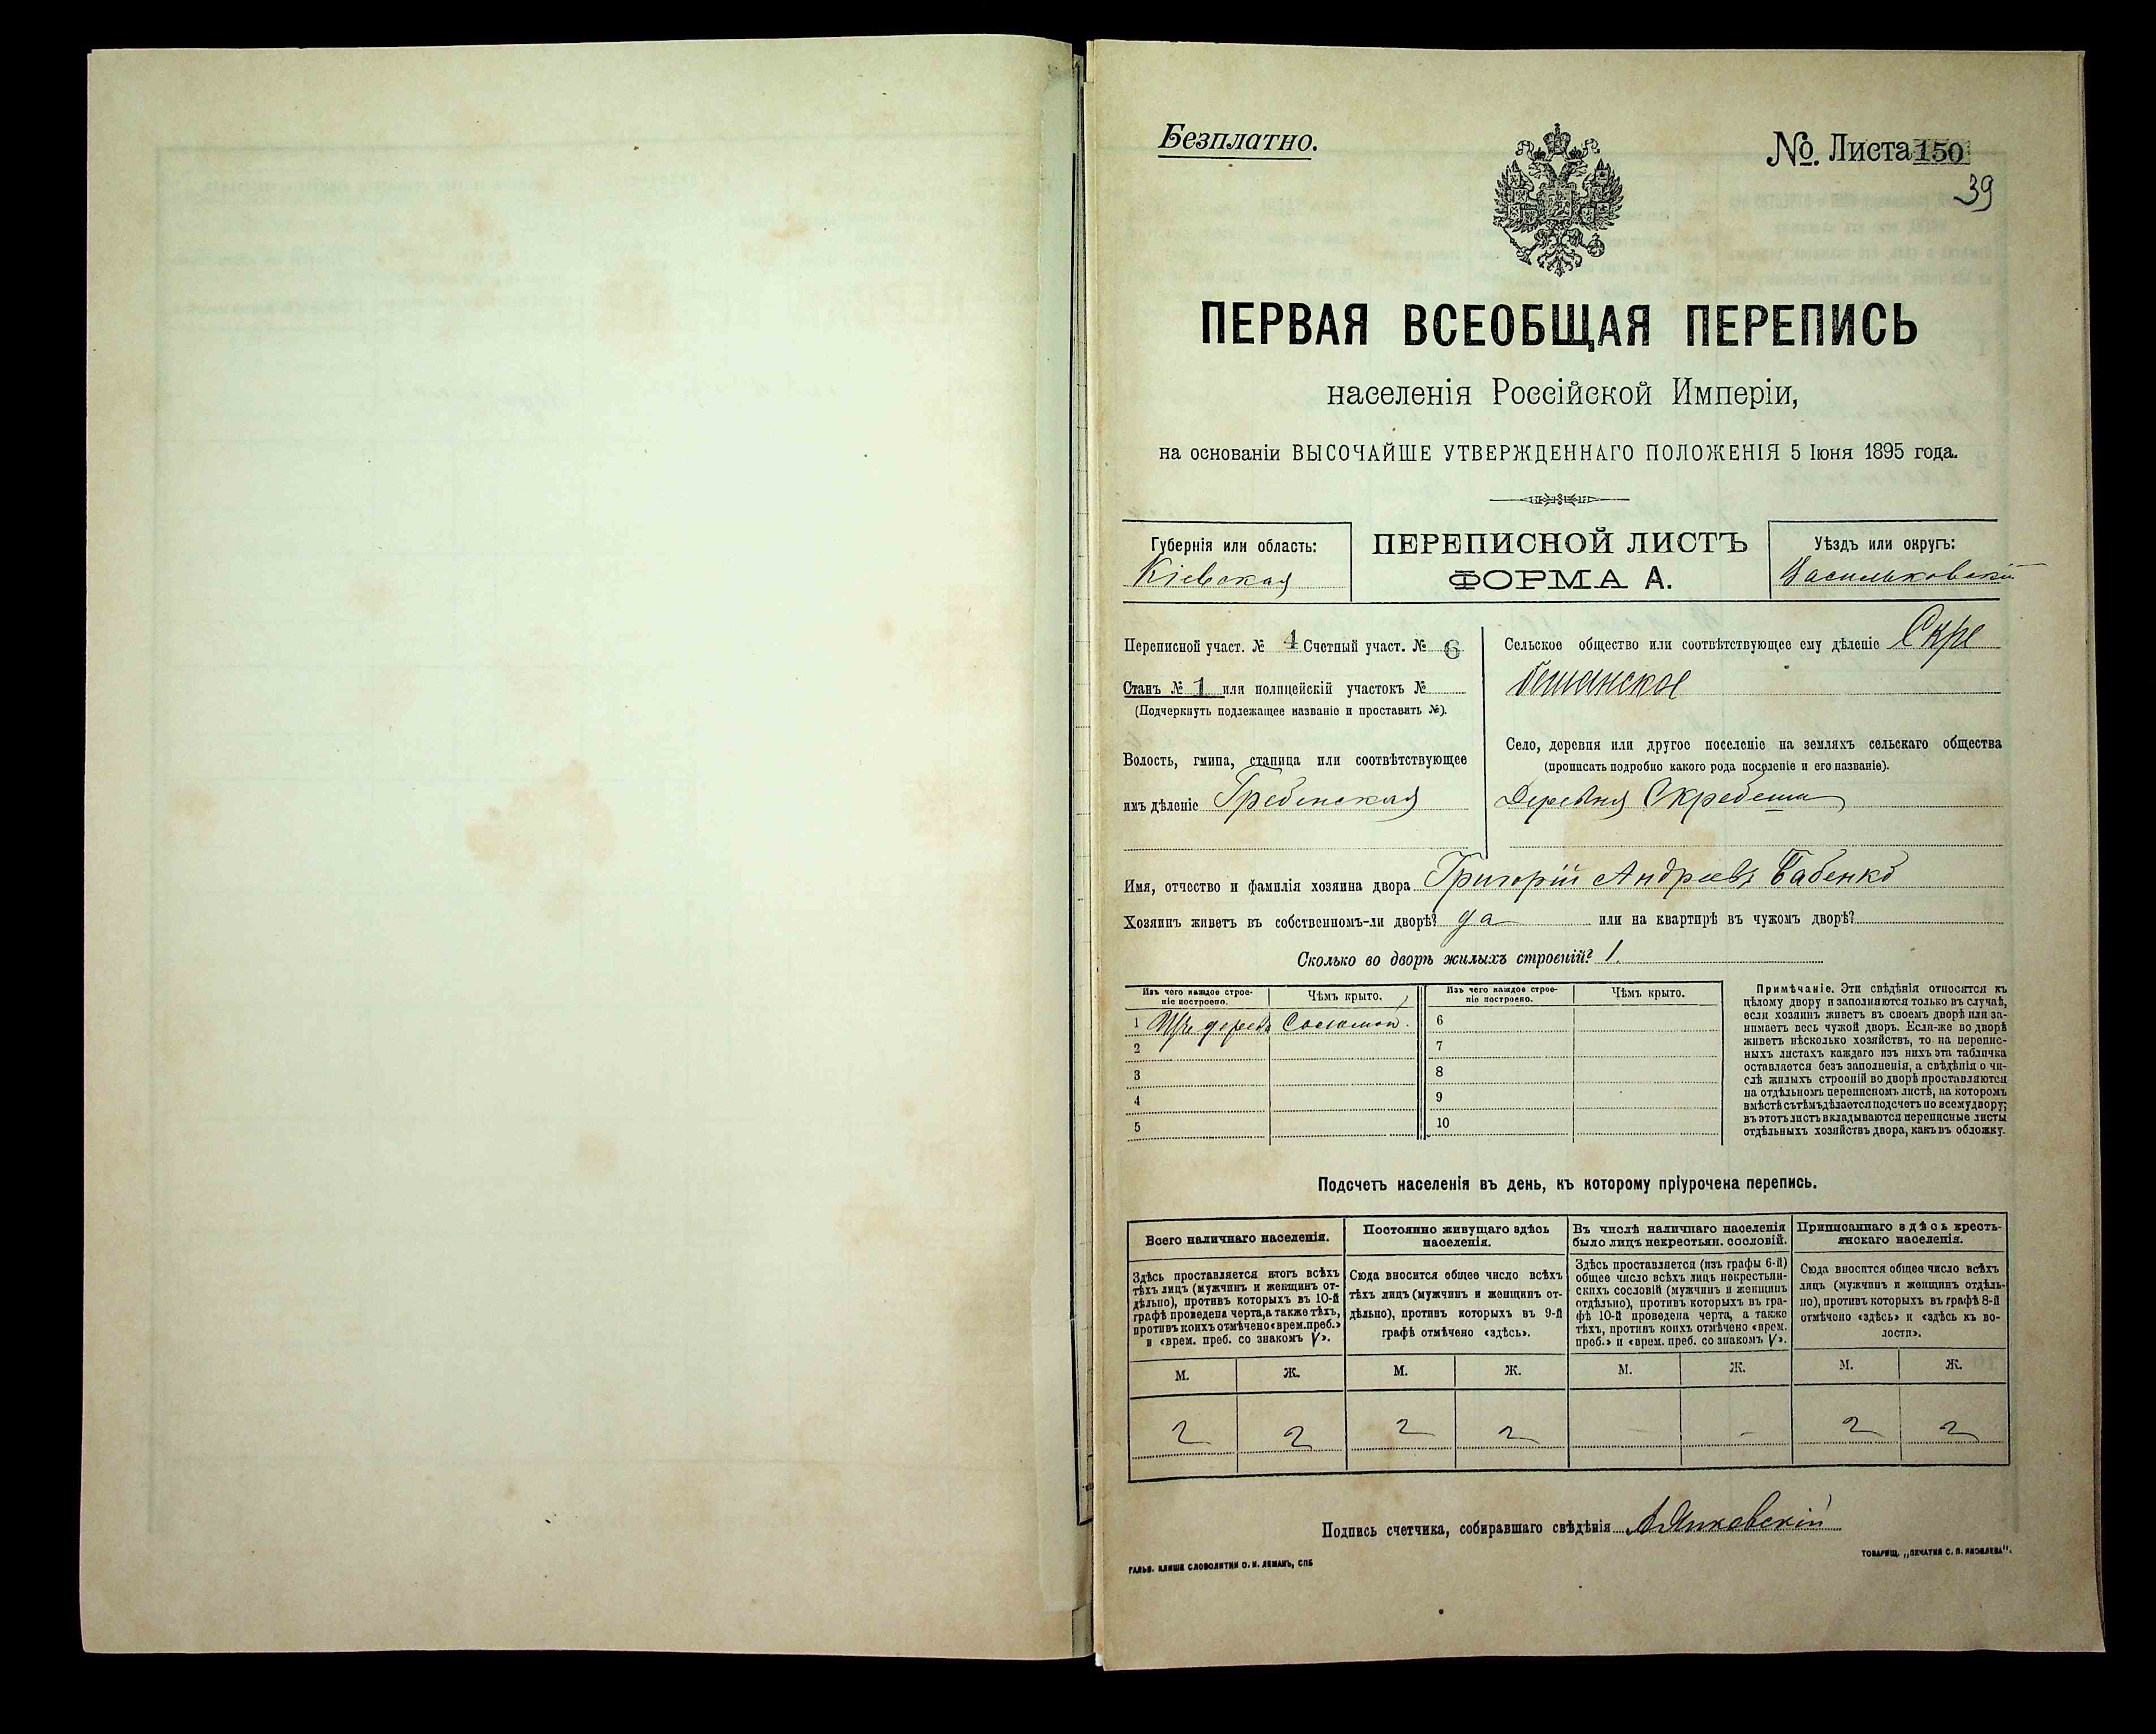 Безплатно.
№. Листа 150
39
ПЕРВАЯ ВСЕОБЩАЯ ПЕРЕПИСЬ
населенія Россійской Имперіи,
на основаніи ВЫСОЧАЙШЕ УТВЕРЖДЕННАГО ПОЛОЖЕНІЯ 5 Іюня 1895 года.
Губернія или область:
Кіевская
ПЕРЕПИСНОЙ ЛИСТЪ
ФОРМА А.
Уѣздъ или округъ:
Васильковскій
Переписной участ. № 4 Счетный участ. № 6
Станъ № 1 или полицейскій участокъ №
(Подчеркнуть подлежащее названіе и проставить №).
Волость, гмина, станица или соотвѣтствующее
имъ дѣленіе Гребенская
Сельское общество или соотвѣтствующее ему дѣленіе Скре
бешанское
Село, деревня или другое поселеніе на земляхъ сельскаго общества
(прописать подробно какого рода поселеніе и его названіе).
Деревня Скребеши
Имя, отчество и фамилія хозяина двора Григорій Андреевъ Бабенко
Хозяинъ живетъ въ собственномъ-ли дворѣ? да или на квартирѣ въ чужомъ дворѣ?
Сколько во дворѣ жилыхъ строеній? 1.
Изъ чего каждое строе-
ніе построено.
Чѣмъ крыто.
1 Изъ дерева Соломой.
2
3
4
5
Изъ чего каждое строе-
ніе построено.
Чѣмъ крыто.
6
7
8
9
10
Примѣчаніе. Эти свѣдѣнія относятся къ
цѣлому двору и заполняются только въ случаѣ,
если хозяинъ живетъ въ своемъ дворѣ или за-
нимаетъ весь чужой дворъ. Если-же во дворѣ
живетъ нѣсколько хозяйствъ, то на перепис-
ныхъ листахъ каждаго изъ нихъ эта табличка
оставляется безъ заполненія, а свѣдѣнія о чи-
слѣ жилыхъ строеній во дворѣ проставляются
на отдѣльномъ переписномъ листѣ, на которомъ
вмѣстѣ съ тѣмъ дѣлается подсчетъ по всему двору;
въ этотъ листъ вкладываются переписные листы
отдѣльныхъ хозяйствъ двора, какъ въ обложку.
Подсчетъ населенія въ день, къ которому пріурочена перепись.
Всего наличнаго населенія.
Здѣсь проставляется итогъ всѣхъ
тѣхъ лицъ (мужчинъ и женщинъ от-
дѣльно), противъ которыхъ въ 10-й
графѣ проведена черта, а также тѣхъ,
противъ коихъ отмѣчено «врем. преб.»
и «врем. преб. со знакомъ V».
М. Ж.
2 2
Постоянно живущаго здѣсь
населенія.
Сюда вносится общее число всѣхъ
тѣхъ лицъ (мужчинъ и женщинъ от-
дѣльно), противъ которыхъ въ 9-й
графѣ отмѣчено «здѣсь».
М. Ж.
2 2
Въ числѣ наличнаго населенія
было лицъ некрестьян. сословій.
Здѣсь проставляется (изъ графы 6-й)
общее число всѣхъ лицъ некрестьян-
скихъ сословій (мужчинъ и женщинъ
отдѣльно), противъ которыхъ въ гра-
фѣ 10-й проведена черта, а также
тѣхъ, противъ коихъ отмѣчено «врем.
преб.» и «врем. преб. со знакомъ V».
М. Ж.
- -
Приписаннаго здѣсь кресть-
янскаго населенія.
Сюда вносится общее число всѣхъ
лицъ (мужчинъ и женщинъ отдѣль-
но), противъ которыхъ въ графѣ 8-й
отмѣчено «здѣсь» и «здѣсь къ во-
лости».
М. Ж.
2 2
Подпись счетчика, собиравшаго свѣдѣнія А. Янковскій
ГАЛЬВ. КЛИШЕ СЛОВОЛИТНИ О. И. ЛЕМАНЪ, СПБ
ТОВАРИЩ. „ПЕЧАТНЯ С. П. ЯКОВЛЕВА“.